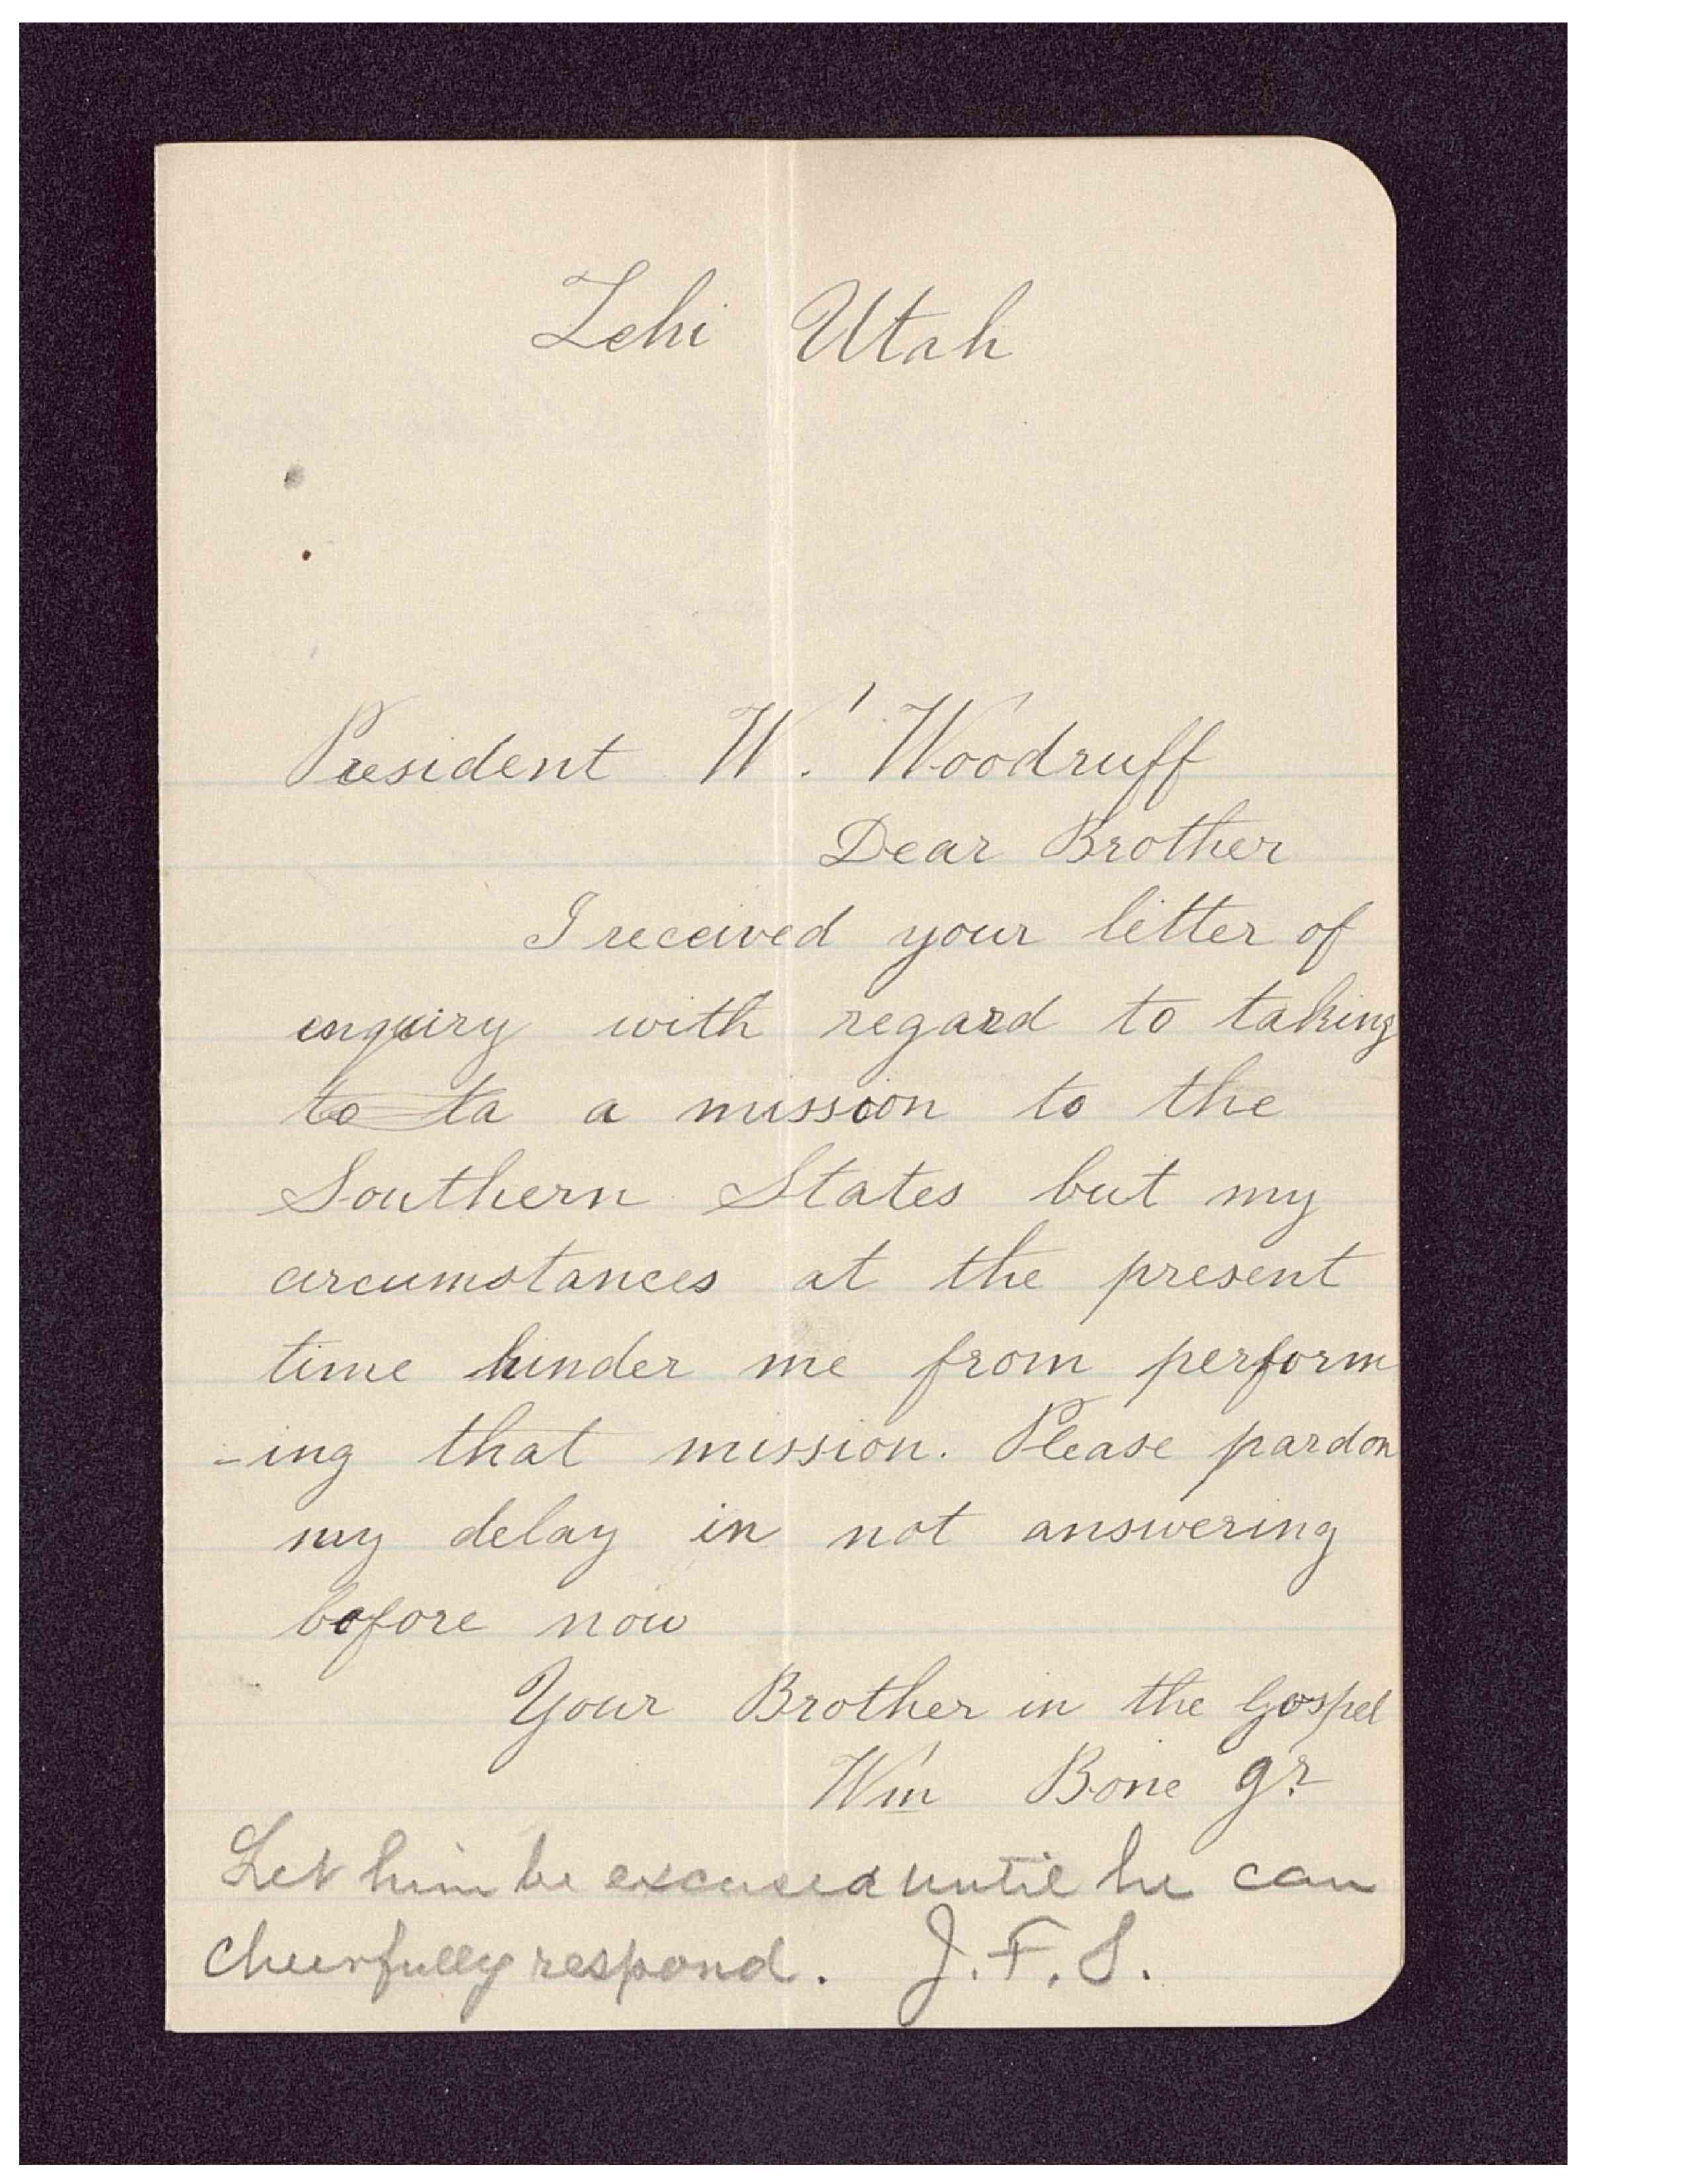 Lehi Utah
President W. Woodruff
Dear Brother
I received your letter of
enquiry with regard to taking
to ta a mission to the
Southern States but my
circumstances at the present
time hinder me from perform
-ing that mission. Please pardon
my delay in not answering
before now
Your Brother in the Gospel
Wm Bone Jr.
Let him be excused until he can
cheerfully respond. J. F. S.